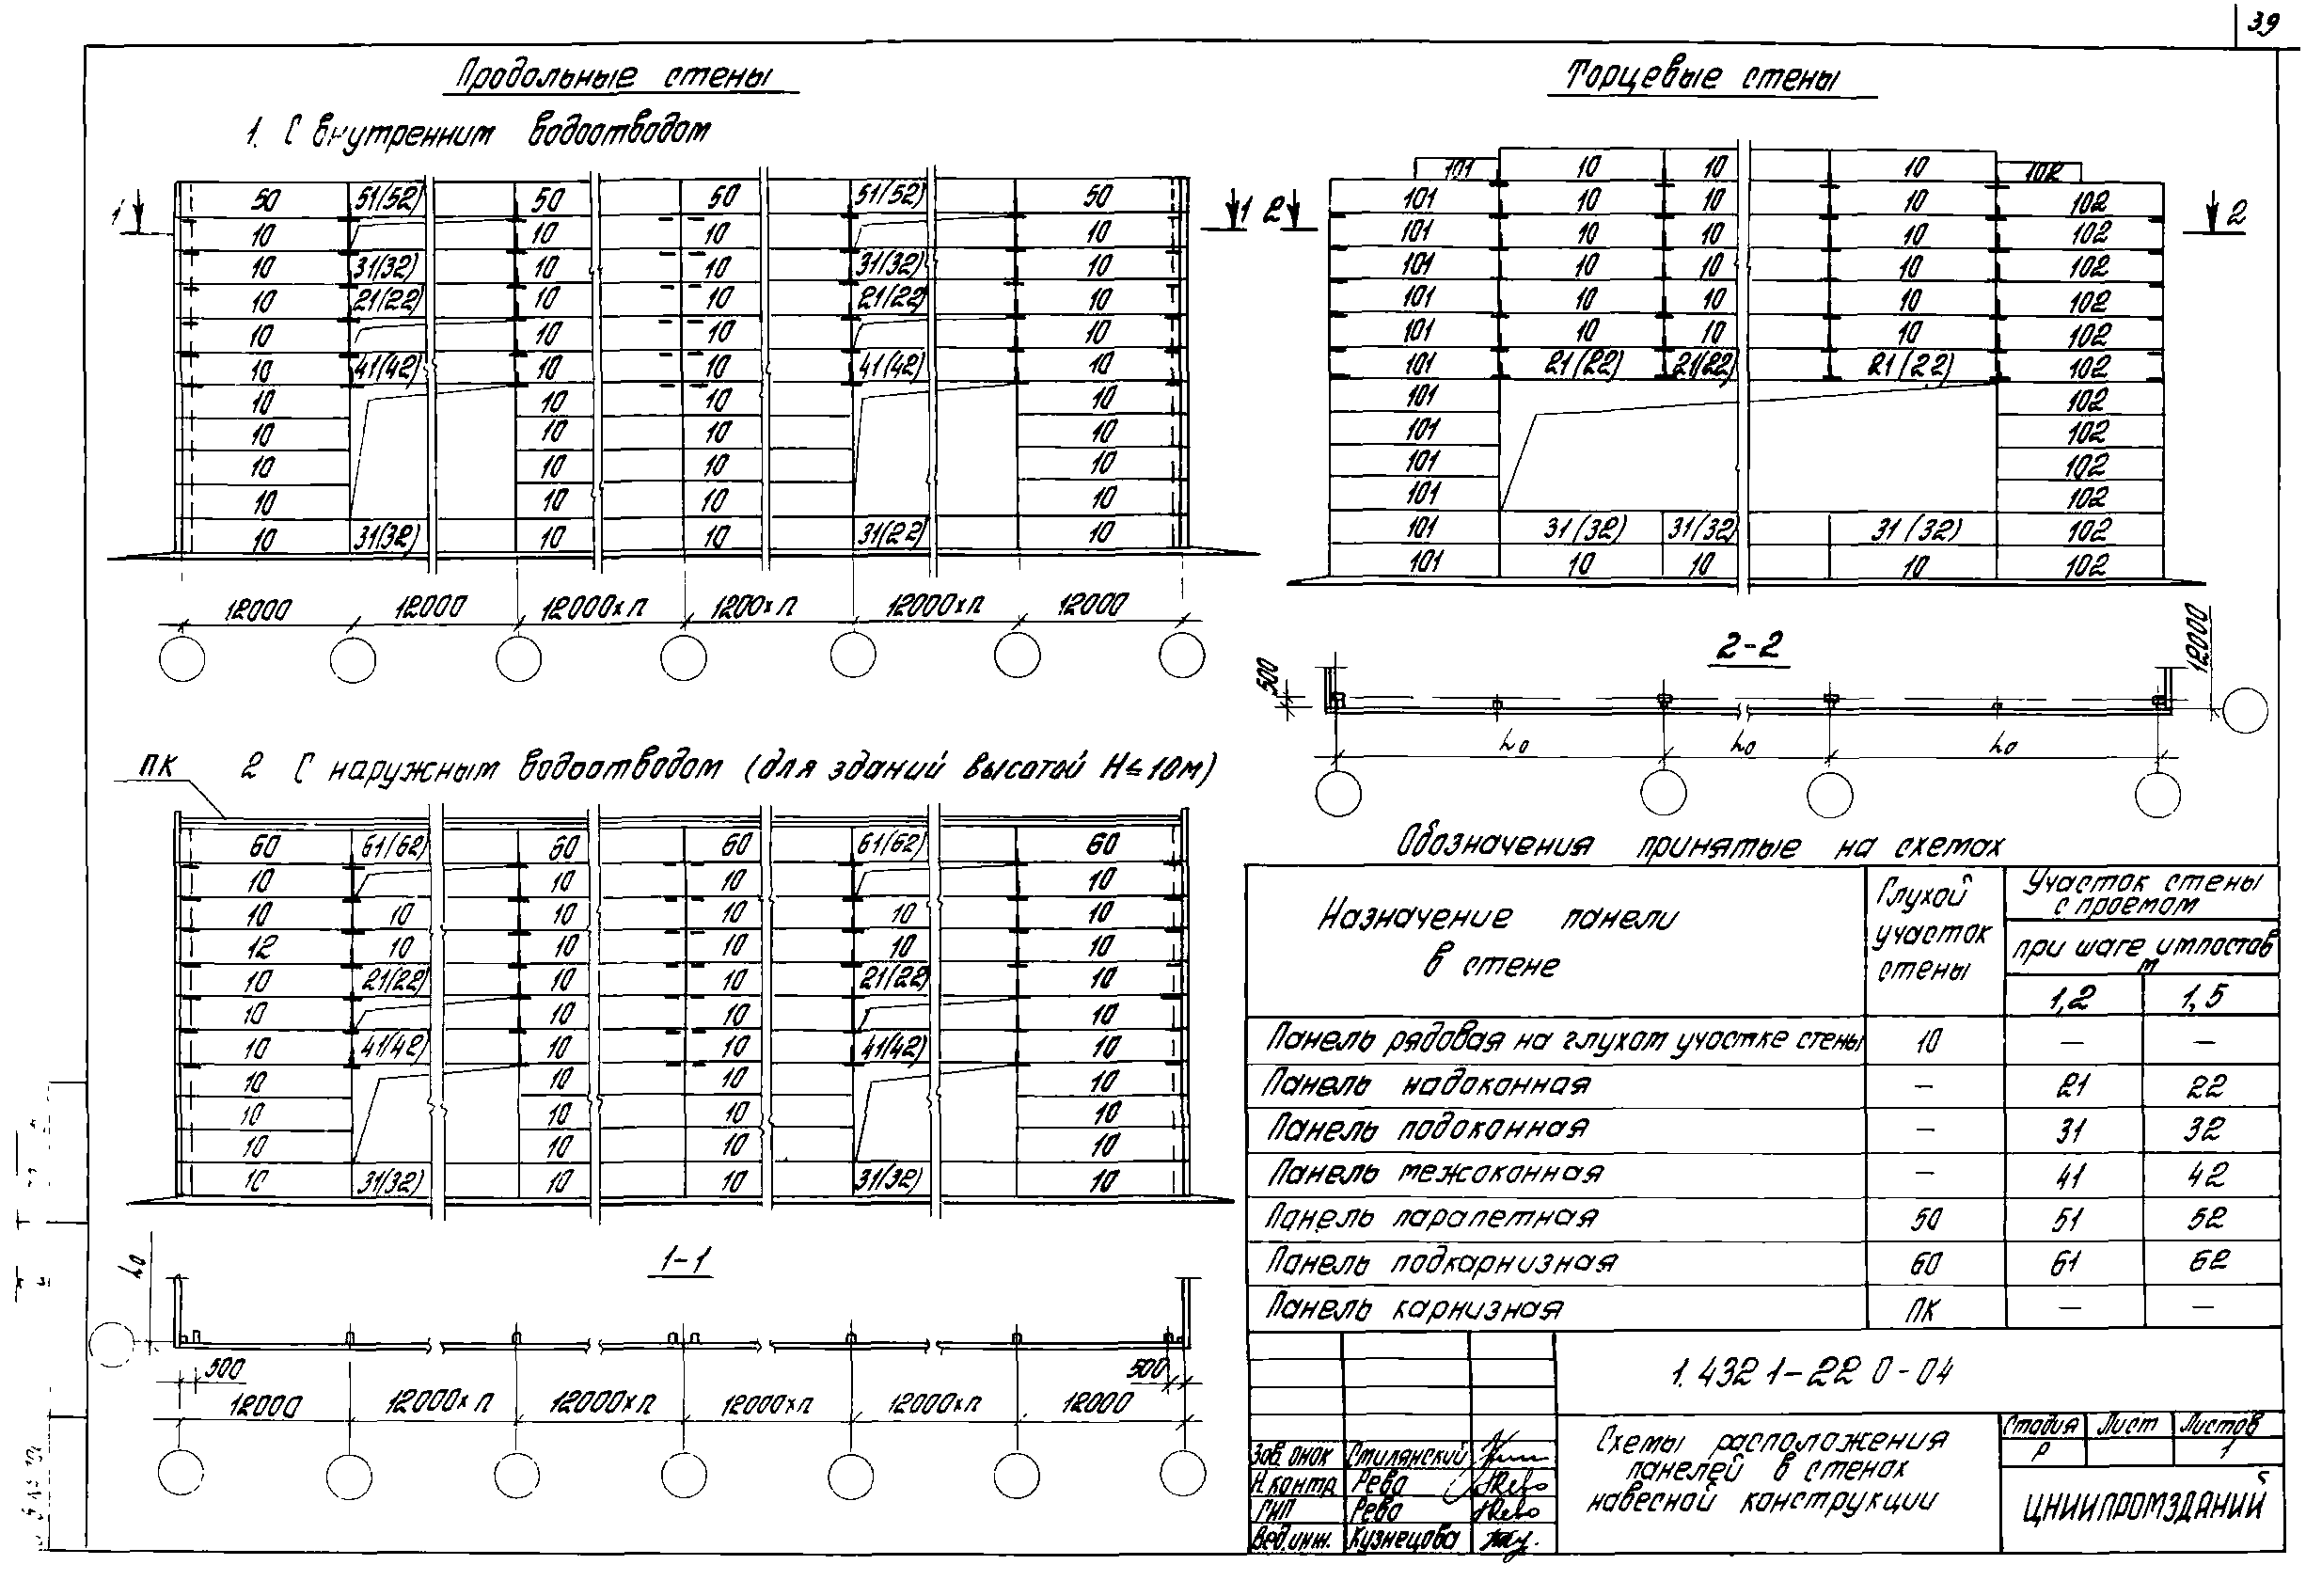 39
Продольные стены
1. С внутренним водоотводом
50 51(52) 50 50 51(52) 50
10 10 10 10
10 31(32) 10 10 31(32) 10
10 21(22) 10 10 21(22) 10
10 10 10 10
10 41(42) 10 10 41(42) 10
10 10 10 10
10 10 10 10
10 10 10 10
10 10 10 10
10 31(32) 10 10 31(22) 10
1 1
12000 12000 12000хп 1200хп 12000хп 12000
Торцевые стены
101 10 10 10 102
101 10 10 10 102
101 10 10 10 102
101 10 10 10 102
101 10 10 10 102
101 10 10 10 102
101 21(22) 21(22) 21(22) 102
101 102
101 102
101 102
101 102
101 31(32) 31(32) 31(32) 102
101 10 10 10 102
2 2
2-2
500 12000
Lо Lо Lо
2 С наружным водоотводом (для зданий высотой Н≤10м)
ПК
60 61/62) 60 60 61/62) 60
10 10 10 10
10 10 10 10 10 10
12 10 10 10 10 10
10 21(22) 10 10 21(22) 10
10 10 10 10
10 41(42) 10 10 41(42) 10
10 10 10 10
10 10 10 10
10 10 10 10
10 31(32) 10 10 31(32) 10
1-1
Lо
500 500
12000 12000хп 12000хп 12000хп 12000хп 12000
Обозначения принятые на схемах
Назначение панели в стене
Глухой участок стены
Участок стены с проемом
при шаге импостов м
1,2 1,5
Панель рядовая на глухом участке стены 10 — —
Панель надоконная — 21 22
Панель подоконная — 31 32
Панель межоконная — 41 42
Панель парапетная 50 51 52
Панель подкарнизная 60 61 62
Панель карнизная ПК — —
1.432 1-22 0-04
Зав. онок Стилянский
Н.контр Рева
ГИП Рева
Вед.инж. Кузнецова
Схемы расположения
панелей в стенах
навесной конструкции
Стадия Лист Листов
Р 1
ЦНИИПРОМЗДАНИЙ